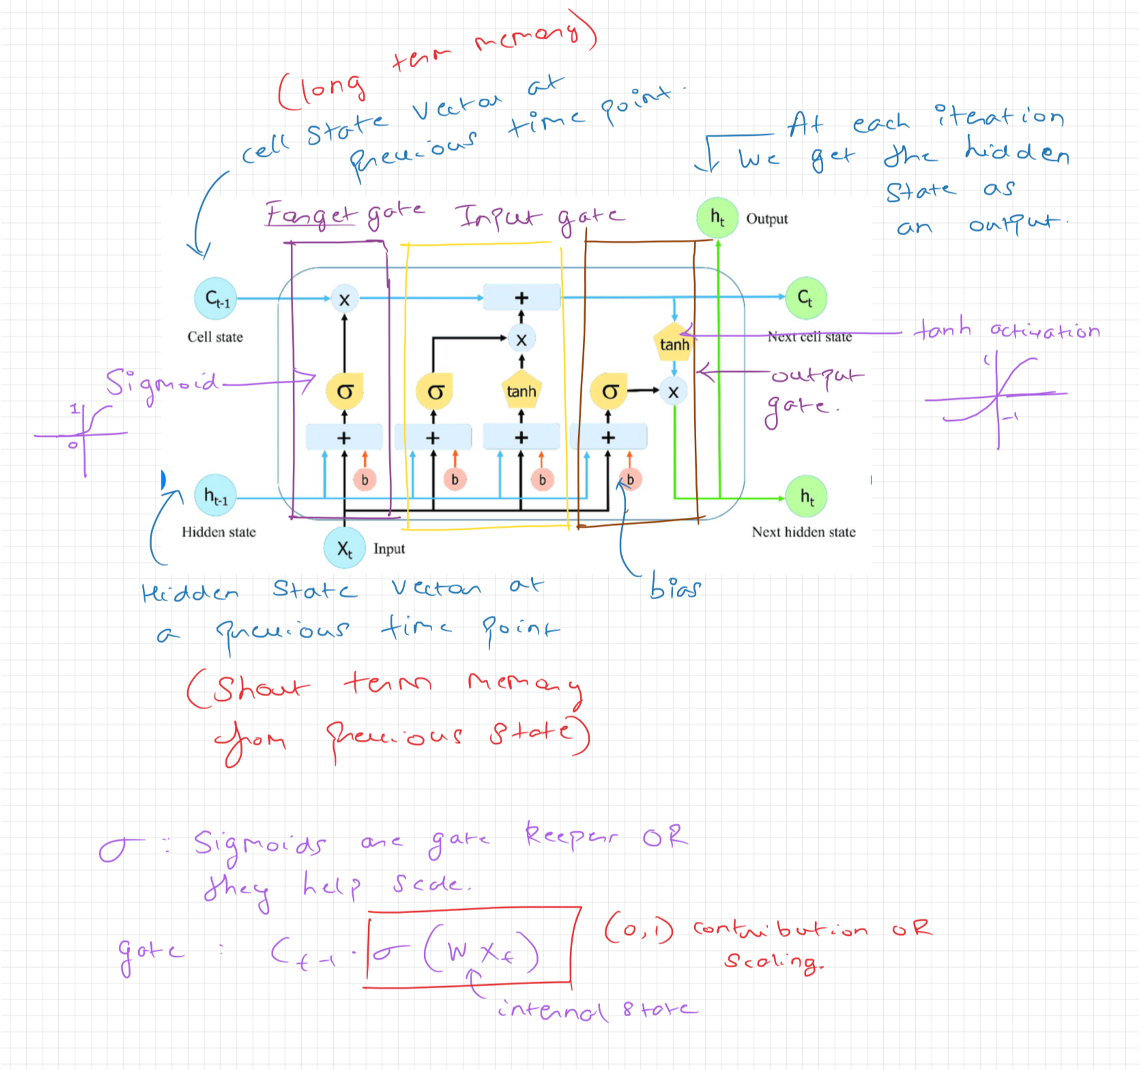 (long term memory)
cell state vector at
previous time point.
At each iteration
we get the hidden
state as
an output.
Forget gate Input gate
hₜ Output
Cₜ₋₁ x + Cₜ
Cell state Next cell state
x tanh
tanh activation
Sigmoid
σ σ tanh σ x
output
gate.
1
0
1
-1
+ + + +
b b b b
hₜ₋₁ hₜ
Hidden state Next hidden state
Xₜ Input
bias
Hidden state vector at
a previous time point
(Short term memory
from previous state)
σ : Sigmoids are gate keeper OR
they help scale.
gate : Cₜ₋₁ · σ (W xₜ) (0,1) contribution OR
scaling.
internal state